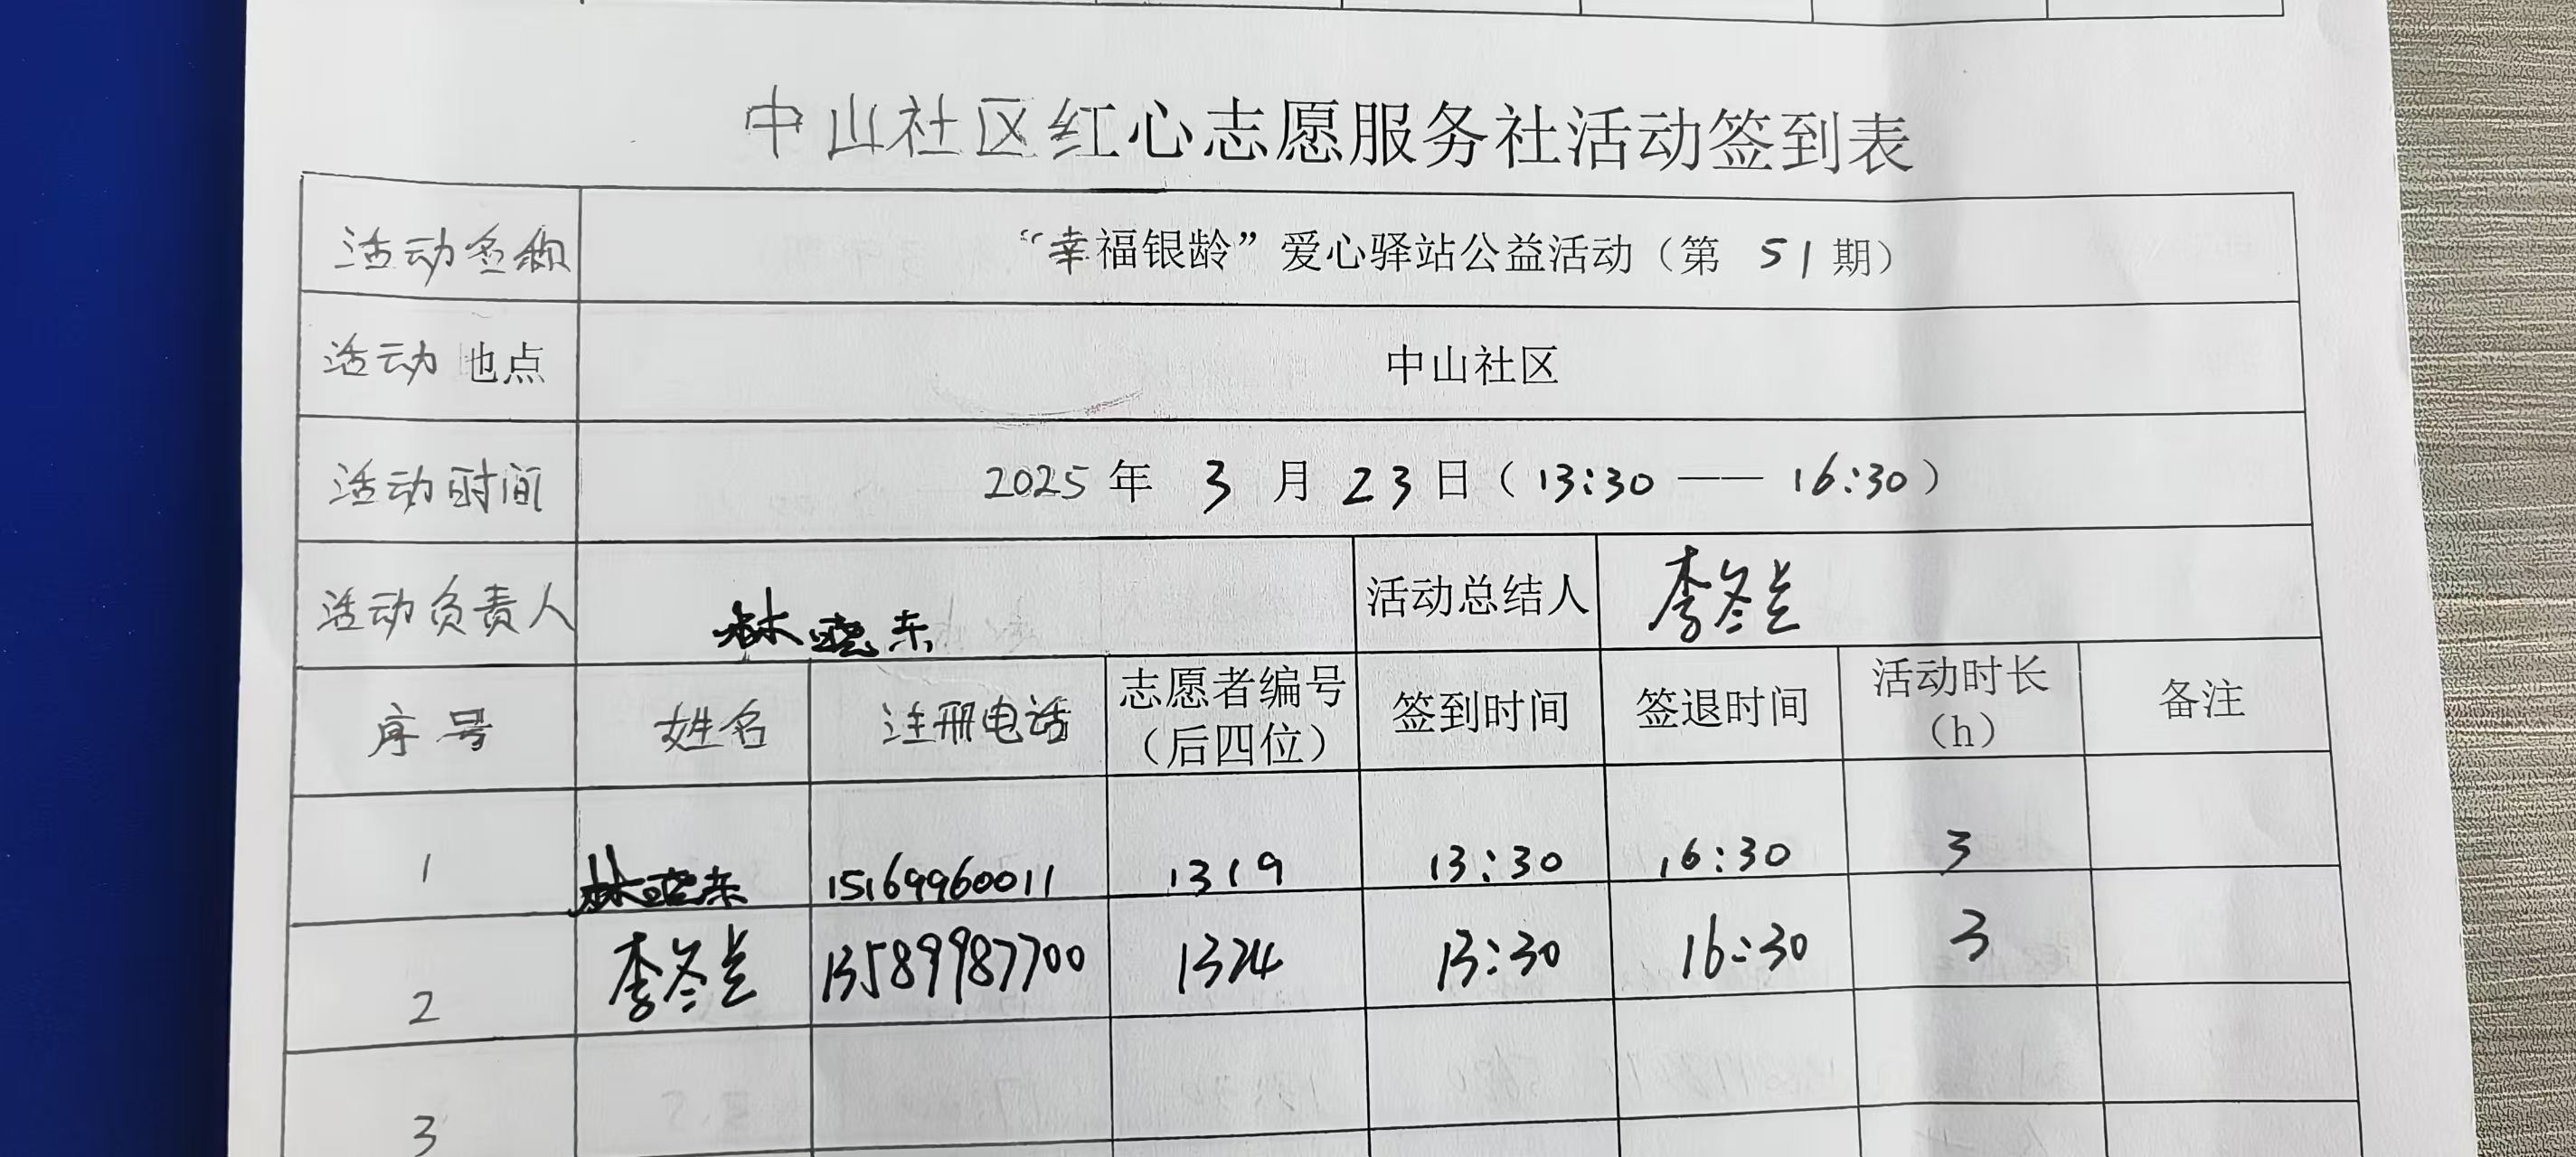 中山社区红心志愿服务社活动签到表
活动名称 “幸福银龄”爱心驿站公益活动（第 51 期）
活动地点 中山社区
活动时间 2025 年 3 月 23 日（13:30 —— 16:30）
活动负责人 林晓东 活动总结人 李冬兰
序号 姓名 注册电话 志愿者编号（后四位） 签到时间 签退时间 活动时长（h） 备注
1 林晓东 15169960011 1319 13:30 16:30 3
2 李冬兰 13589987700 1324 13:30 16:30 3
3